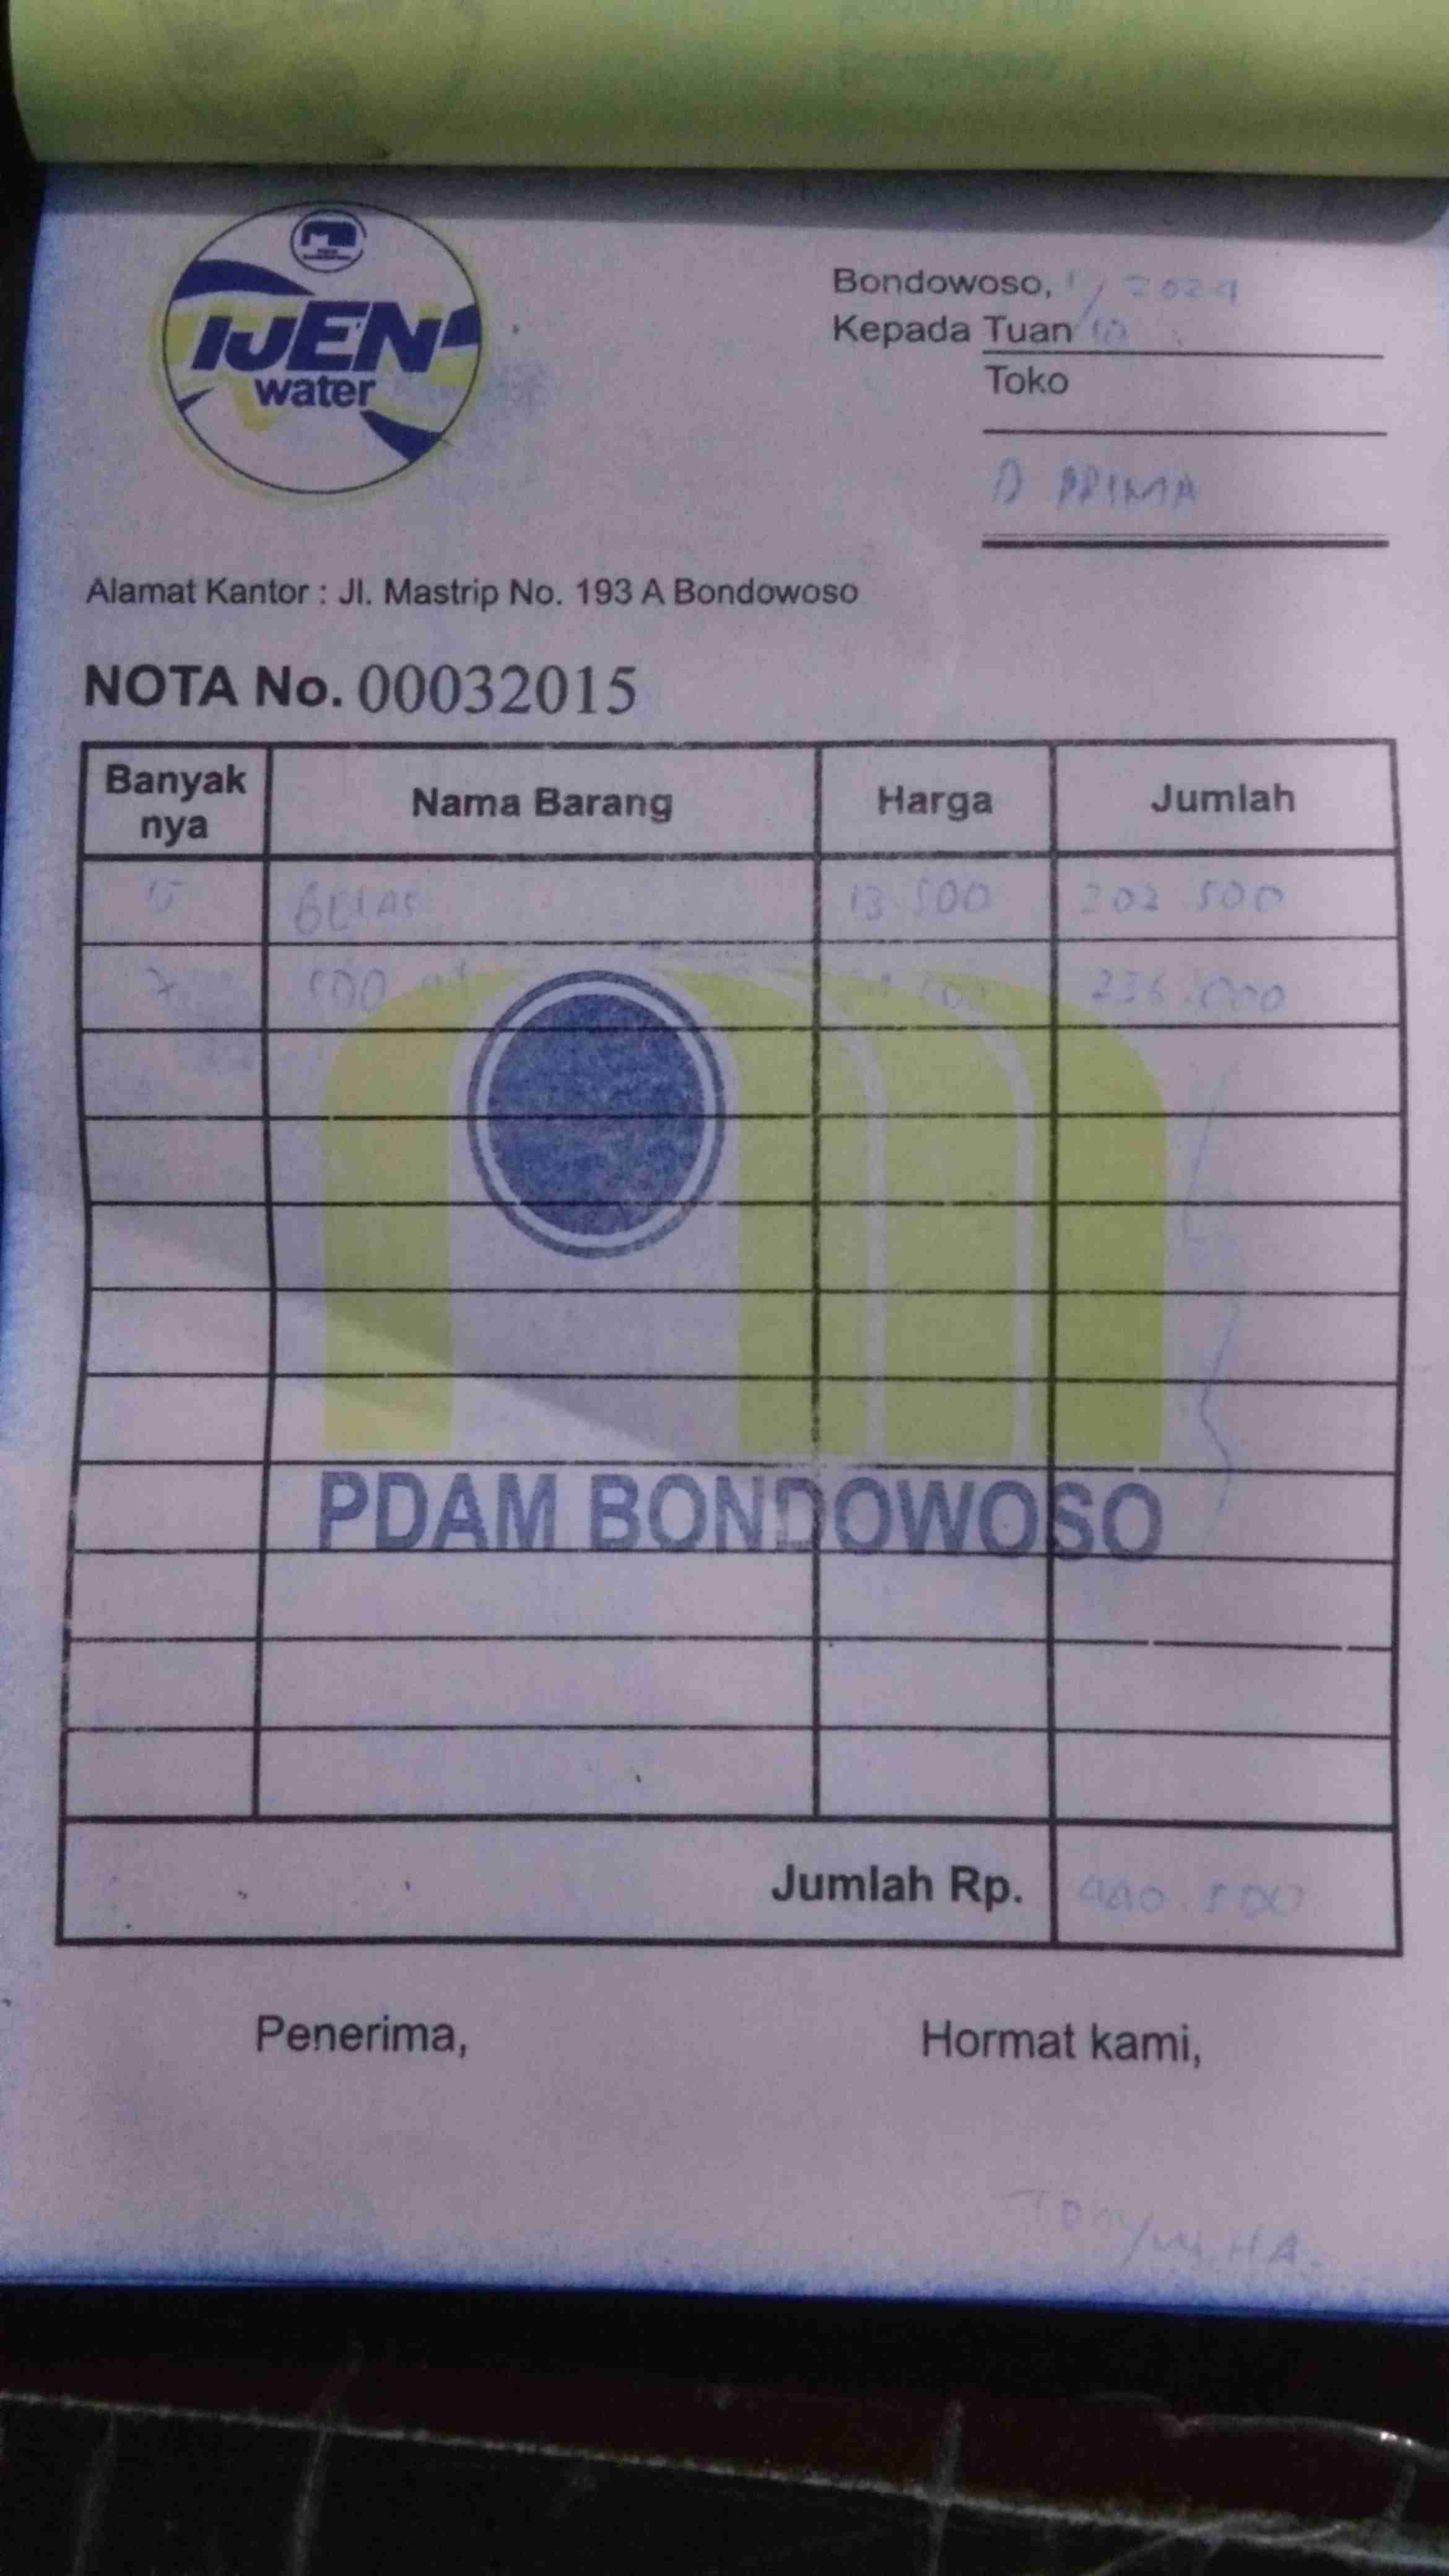 IJEN
water
Bondowoso, 1/ 2024
Kepada Tuan 10
Toko
D PRIMA
Alamat Kantor : Jl. Mastrip No. 193 A Bondowoso
NOTA No. 00032015
Banyak nya Nama Barang Harga Jumlah
GELAS 13 500 202 500
7 500 236.000
PDAM BONDOWOSO
Jumlah Rp. 440.500
Penerima, Hormat kami,